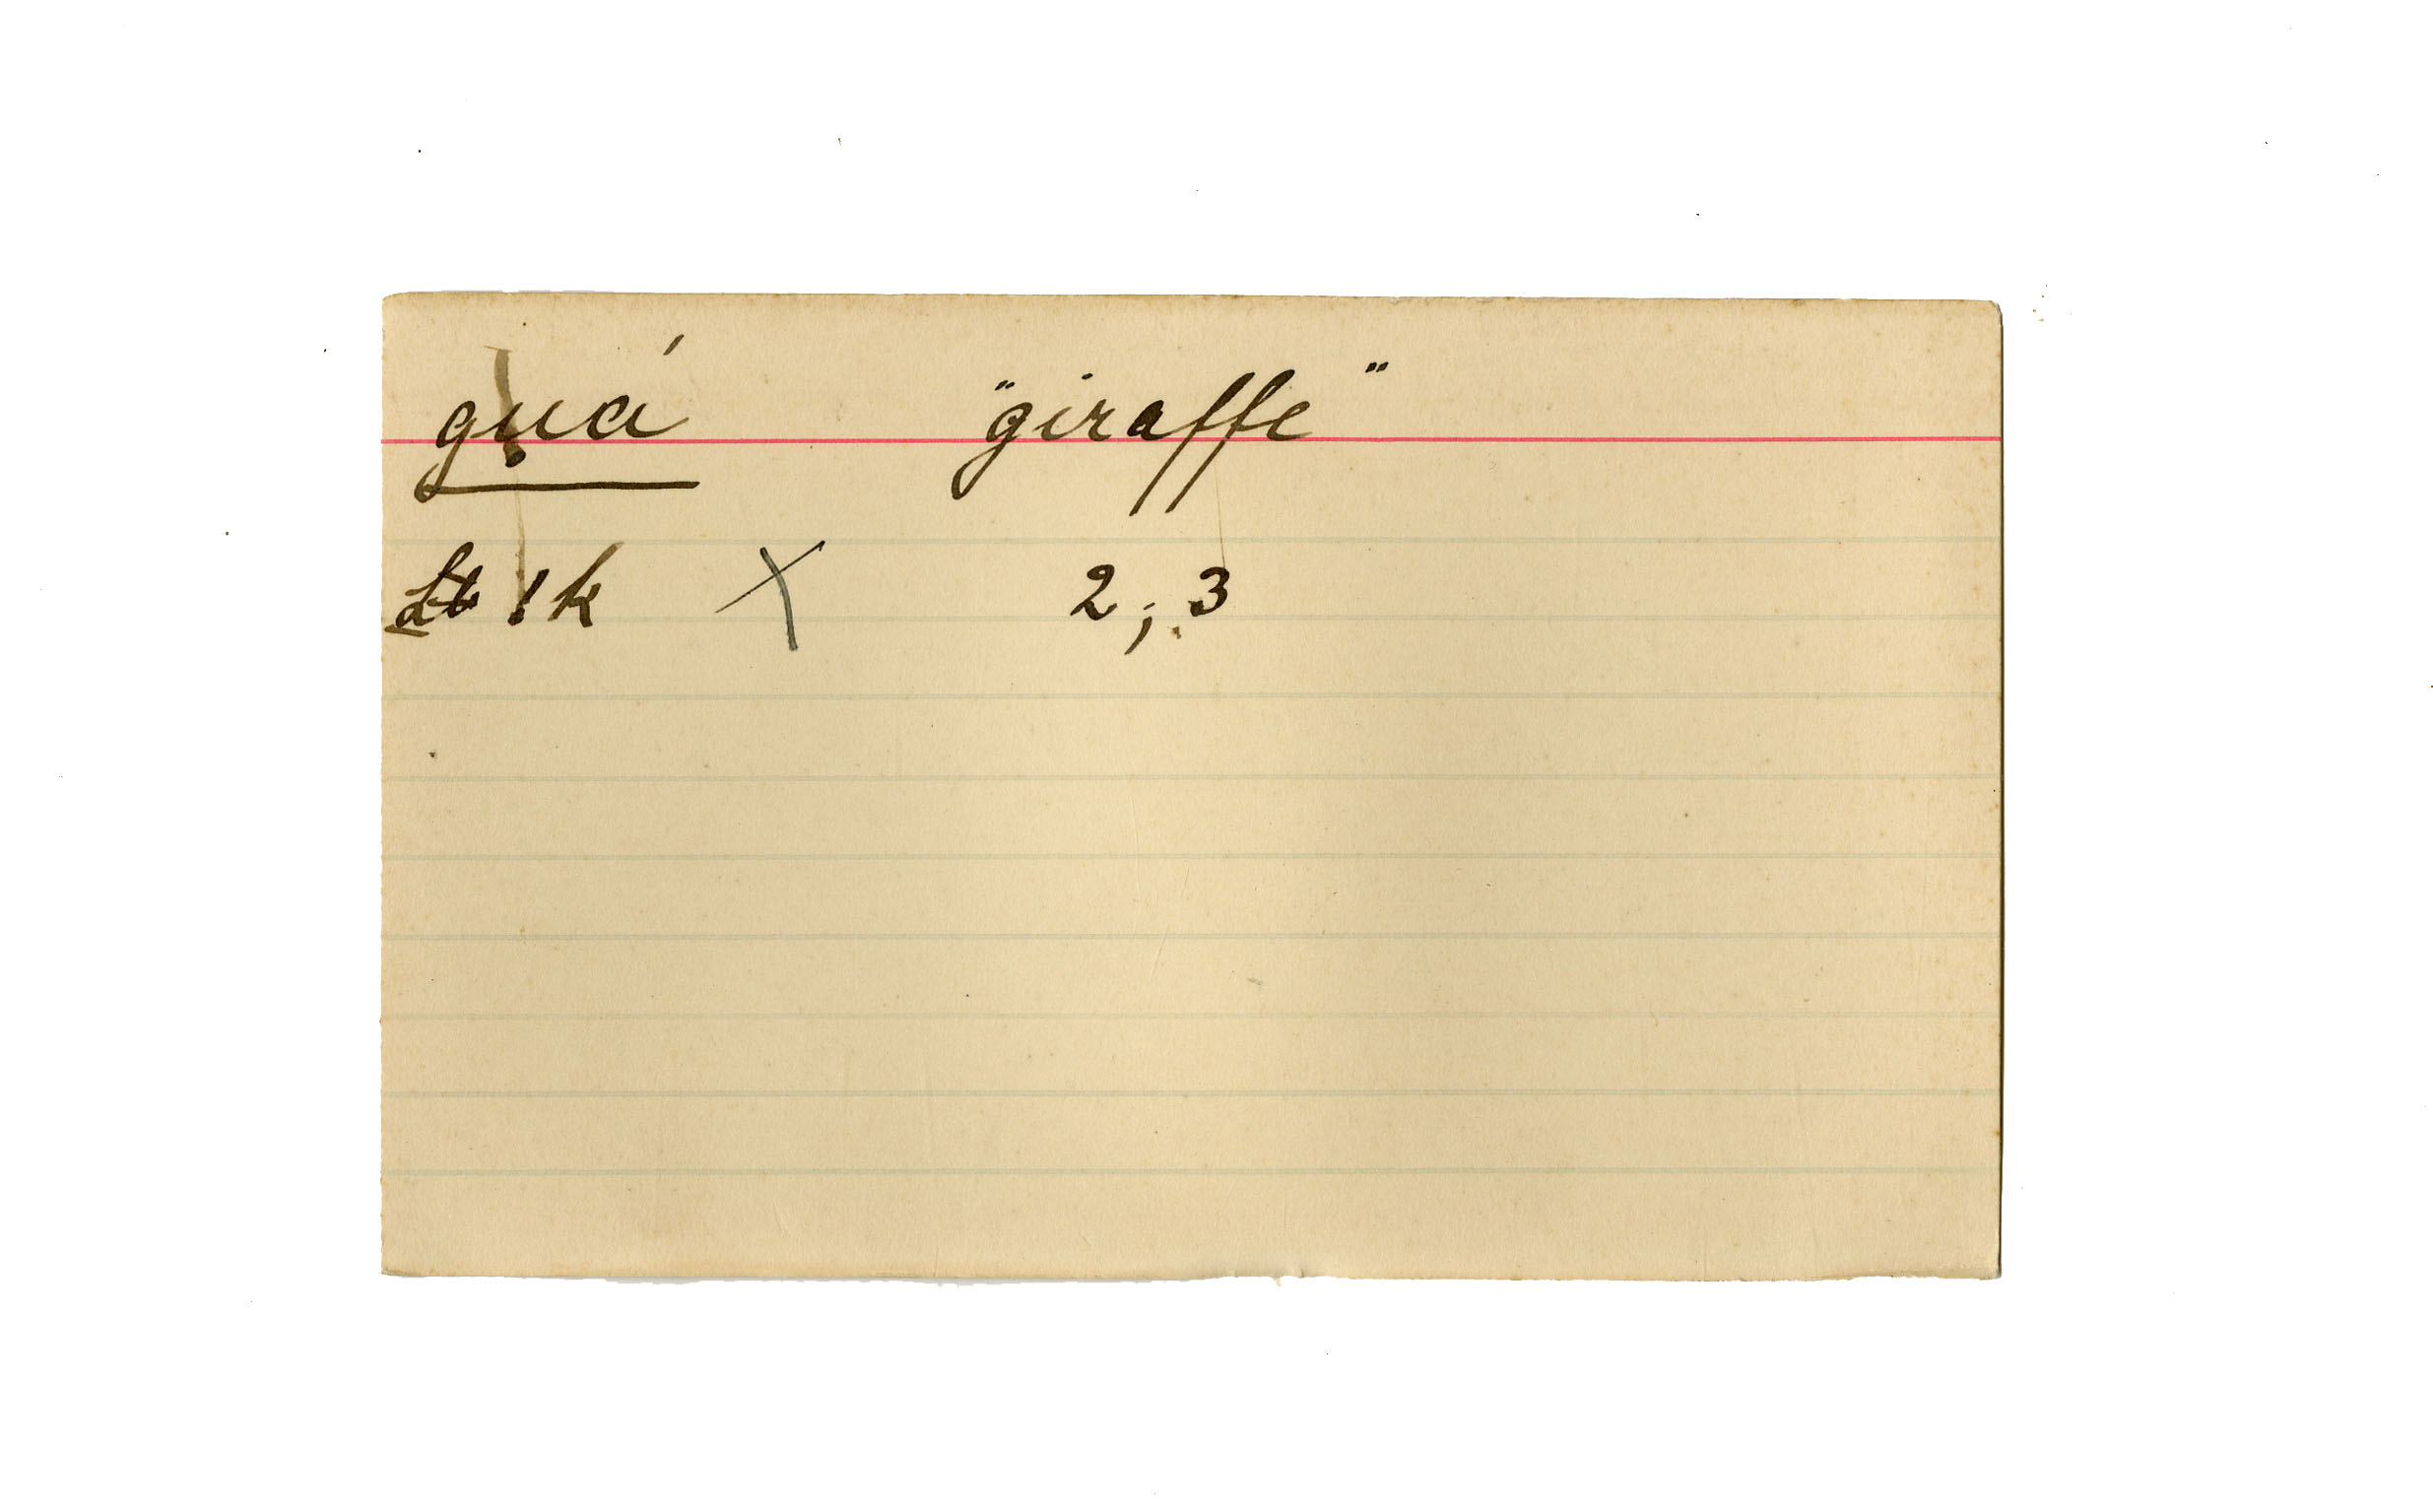 guá "giraffe"
Lt !k X 2; 3